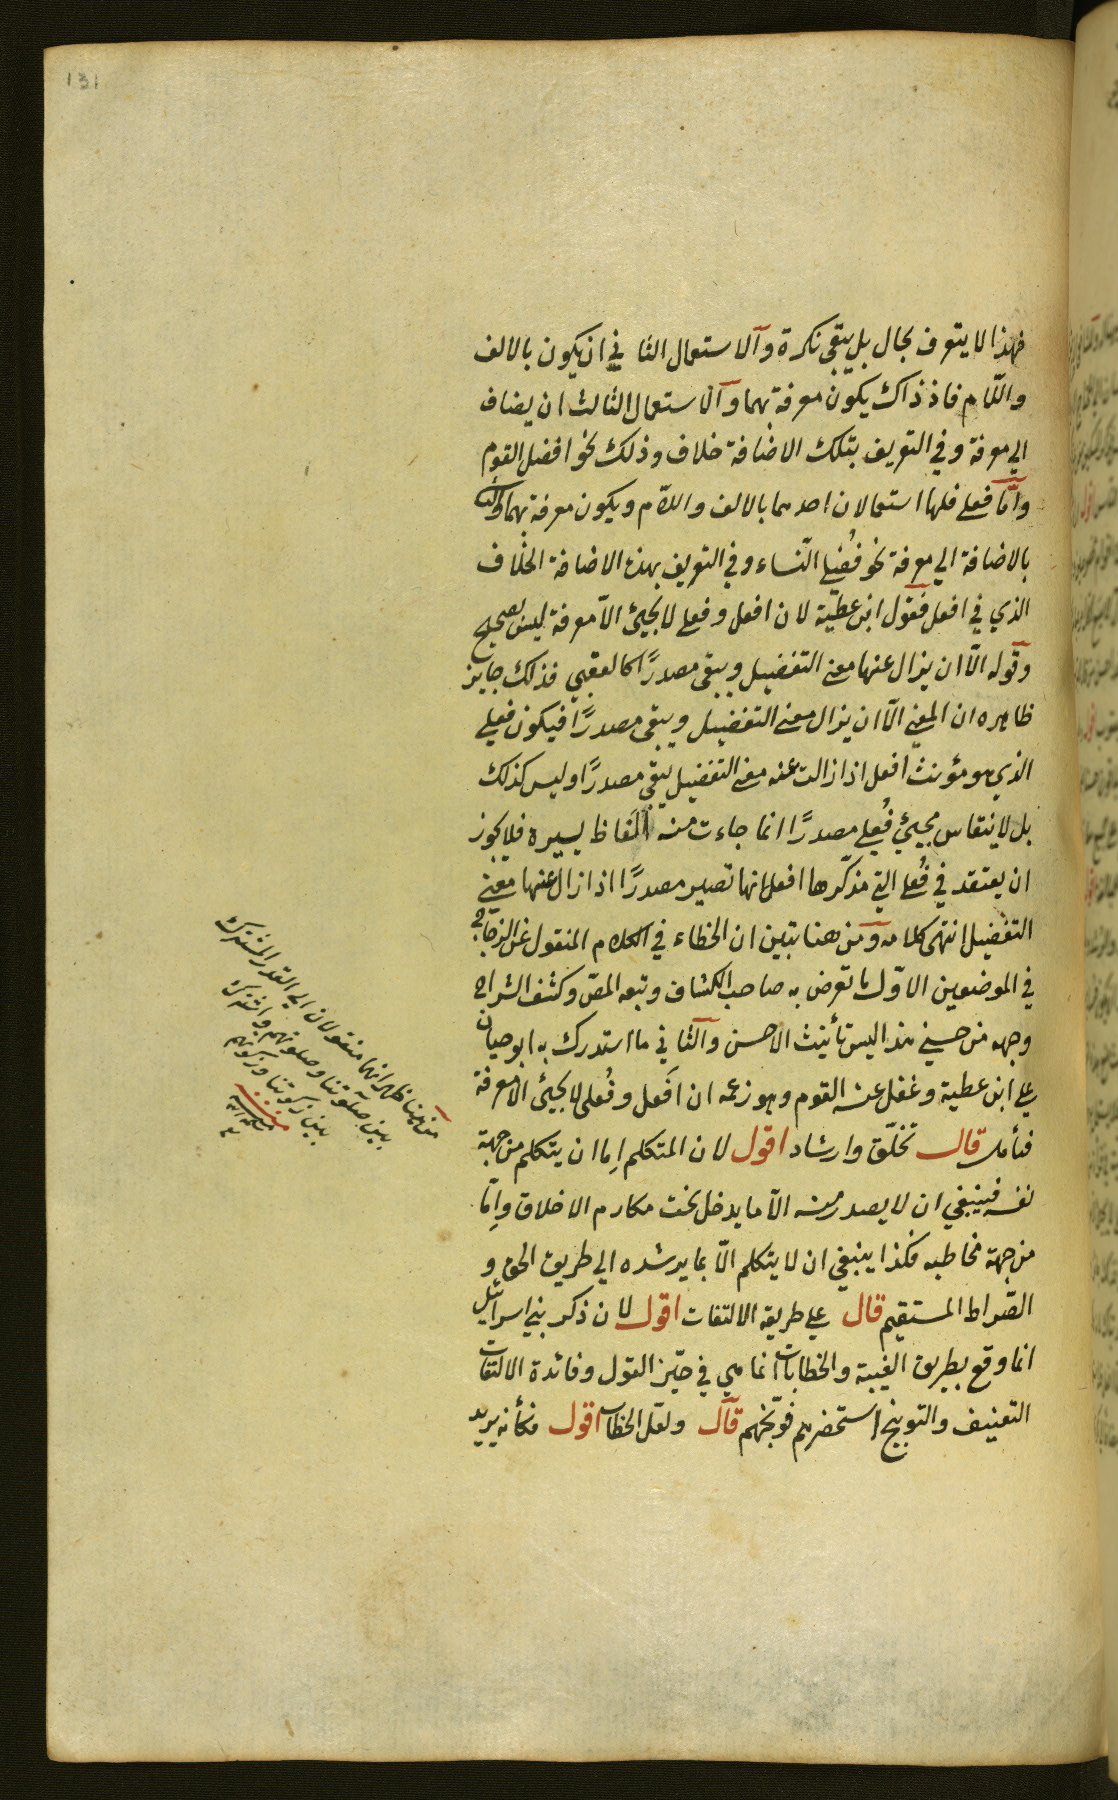 131
فهذا لا يتعرف بحال بل يبقى نكرة والاستعمال الثاني ان يكون بالالف
واللام فاذ ذاك يكون معرفة بهما والاستعمال الثالث ان يضاف
الى معرفة وفي التعريف بتلك الاضافة خلاف وذلك نحو افضل القوم
وامّا فعلى فلها استعمالان احدهما بالالف واللام ويكون معرفة بهما والثاني
بالاضافة الى معرفة نحو فُضلى النّساء وفي التعريف بهذه الاضافة الخلاف
الذي في افعل فقول ابن عطيّة لان افعل وفعلى لا يجيئ الّا معرفة ليس بصحيح
وقوله الّا ان يزال عنها معنى التفضيل ويبقى مصدرًا كالعقبى فذلك جايز
ظاهره ان المعنى الّا ان يزال معنى التفضيل ويبقى مصدرًا فيكون فعلى
الذي هو مؤنث افعل اذا زالت عنه معنى التفضيل يبقى مصدرًا وليس كذلك
بل لا ينقاس مجيئ فُعلى مصدرًا انما جاءت منه الفاظ يسيرة فلا يجوز
ان يعتقد في فُعلى التي مذكّرها افعل انها تصير مصدرًا اذا زال عنها معنى
التفضيل انتهى كلامه ومن هنا تبين ان الخطاء في الكلام المنقول عن الزجاج
في الموضعين الاوّل ما تعرض به صاحب الكشاف وتبعه المص وكشف الشراح
وجهه من حسنى هذا ليس تأنيث الاحسن والثاني ما استدرك به ابو حيان
على ابن عطية وغفل عنه القوم وهو زعمه ان افعل وفُعلى لا يجيئ الا معرفة
فتأمل قال تخلّق وارشاد اقول لان المتكلم اِما ان يتكلم من جهة
نفسه فينبغي ان لا يصدر منه الّا ما يدخل تحت مكارم الاخلاق وامّا
من جهة مخاطبه فكذا ينبغي ان لا يتكلم الّا بما يرشده الى طريق الحق و
الصّراط المستقيم قال على طريقة الالتفات اقول لان ذكر بني اسرائيل
انما وقع بطريق الغيبة والخطابات انما هي في حيّز القول وفائدة الالتفات
التعنيف والتوبيخ استحضرهم فوبّخهم قال ولعل الخطاب اقول فكأنه يريد
من هنا ظهر انهما منقولان الى القدر المشترك
بين صلوتنا وصلوتهم والمشترك
بين زكوتنا وزكوتهم
منه